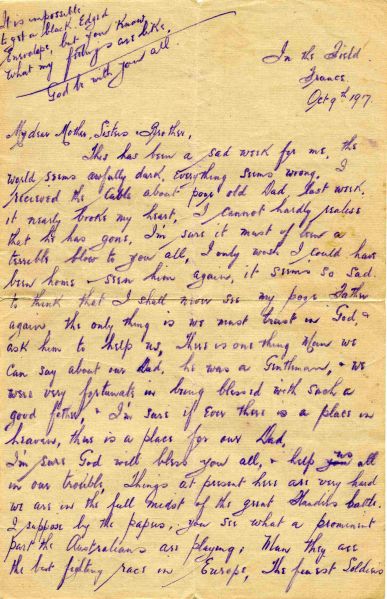 It is impossible
to get a black Edged
Envelope, but you know
what my feelings are like.
God be with you all.
In the Field
France.
Oct 9th 1917.
My dear Mother, Sisters & Brother,
This has been a sad week for me, the
world seems awfully dark, Everything seems wrong. I
received the Cable about poor old Dad, last week,
it nearly broke my heart, I cannot hardly realise
that He has gone, I'm sure it must of been a
terrible blow to you all, I only wish I could have
been home & seen him again, it seems so sad
to think that I shall never see my poor Father
again the only thing is we must trust in God, &
ask him to help us, There is one thing Mum we
can say about our Dad, he was a Gentleman, & we
were very fortunate in being blessed with such a
good father, & I'm sure if Ever there is a place in
heaven, there is a place for our Dad,
I'm sure God will bless you all, & help us all
in our trouble, Things at present here are very hard
we are in the full midst of the great Flanders battle.
I suppose by the papers, you see what a prominent
part the Australians are playing, Mum they are
the best fighting race in Europe, The finest Soldiers